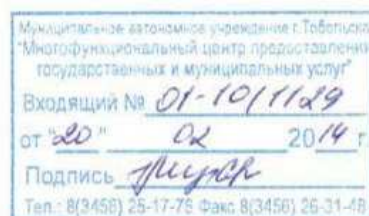 Муниципальное автономное учреждение г.Тобольска
"Многофункциональный центр предоставления
государственных и муниципальных услуг"
Входящий № 01-10/1129
от "20" 02 2014 г.
Подпись
Тел.: 8(3456) 25-17-76 Факс 8(3456) 26-31-48